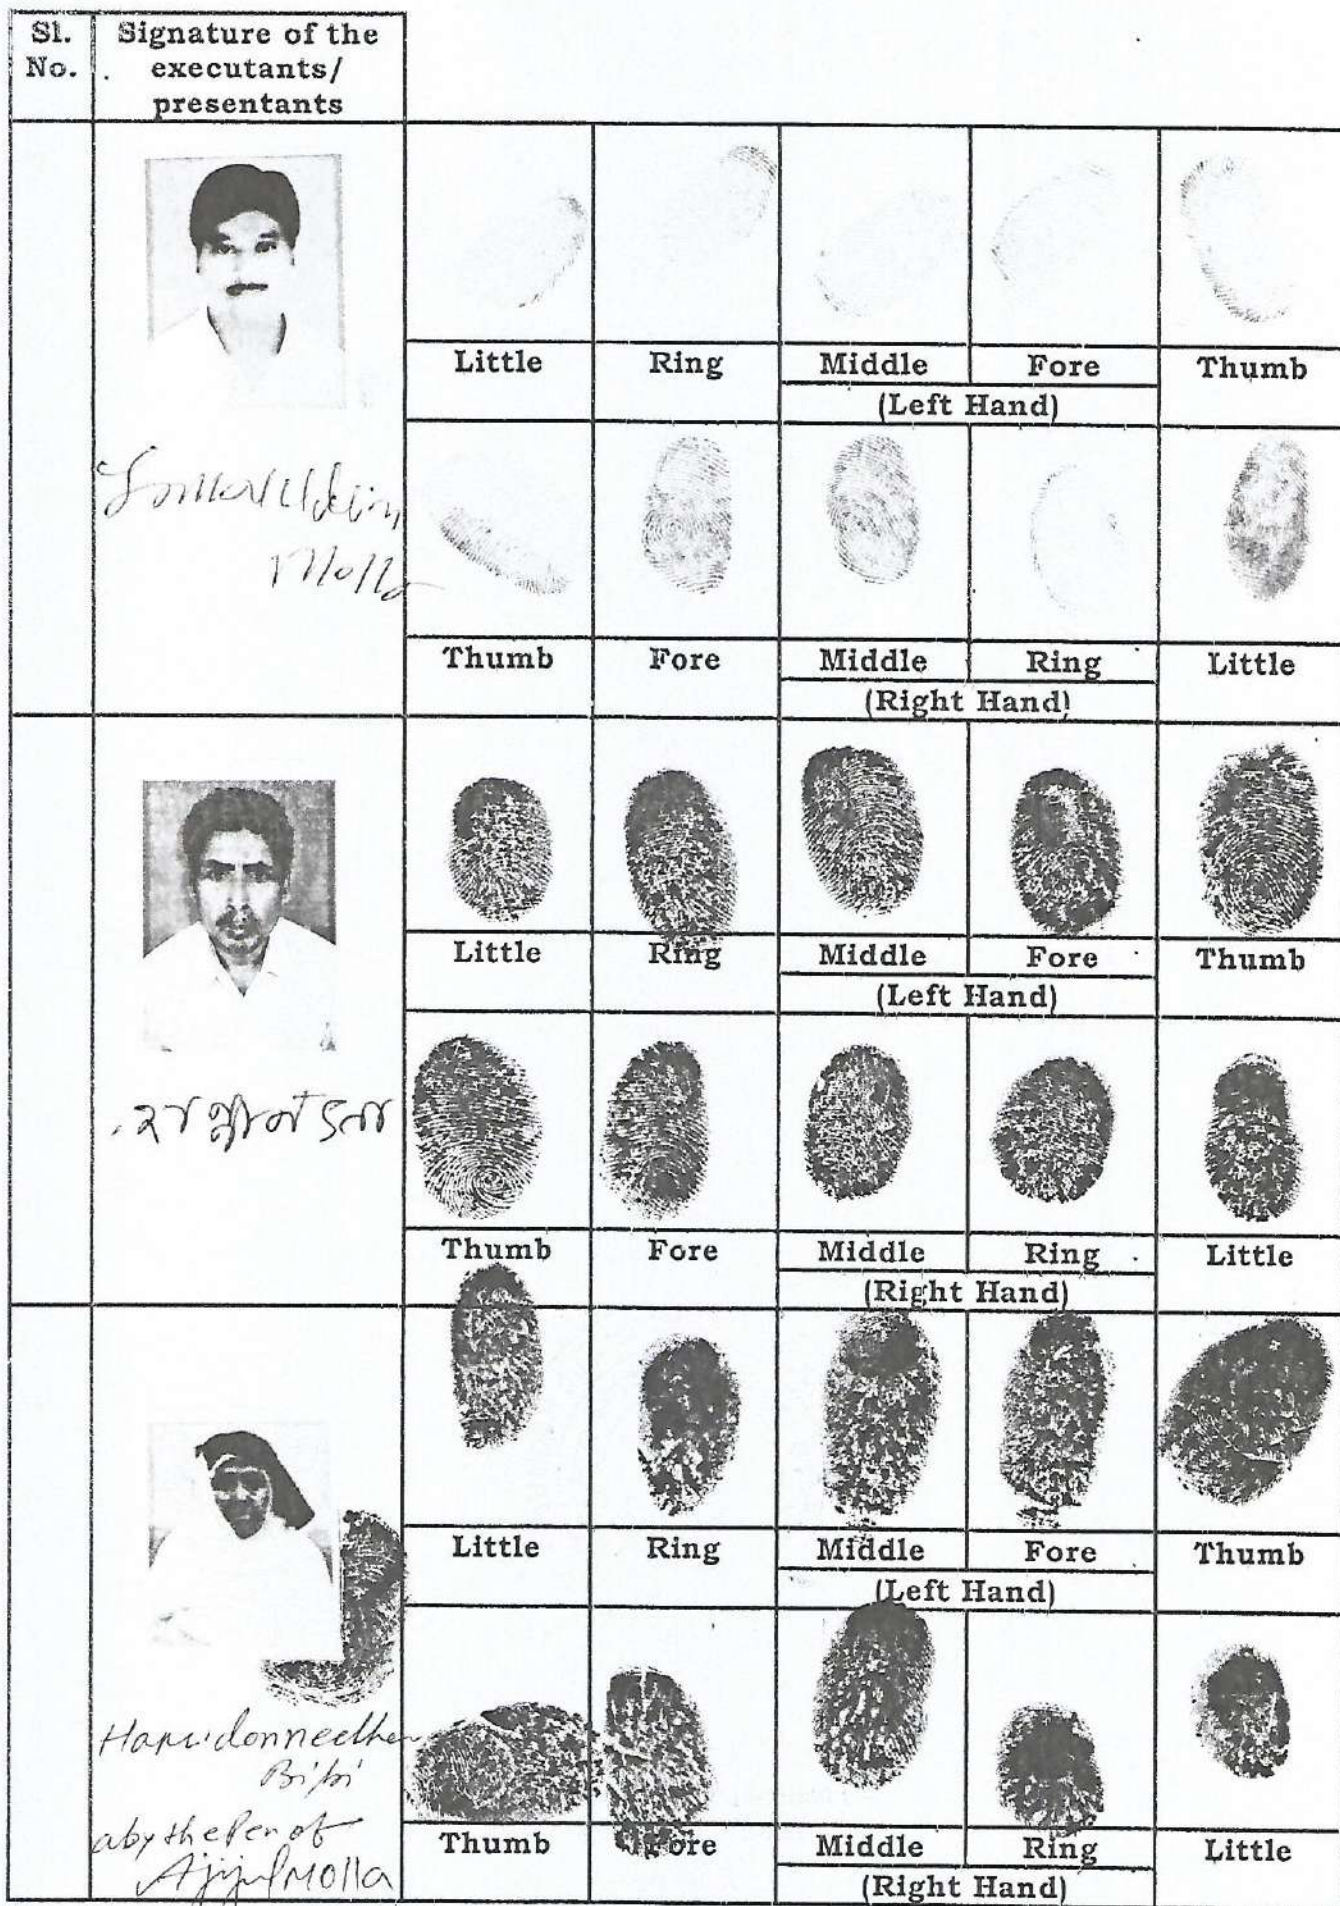 Sl. No.
Signature of the executants/ presentants
Little Ring Middle Fore Thumb
(Left Hand)
Molla
Thumb Fore Middle Ring Little
(Right Hand)
Little Ring Middle Fore Thumb
(Left Hand)
Thumb Fore Middle Ring Little
(Right Hand)
Little Ring Middle Fore Thumb
(Left Hand)
Bibi
aby the Pen of
Ajijul Molla
Thumb Fore Middle Ring Little
(Right Hand)